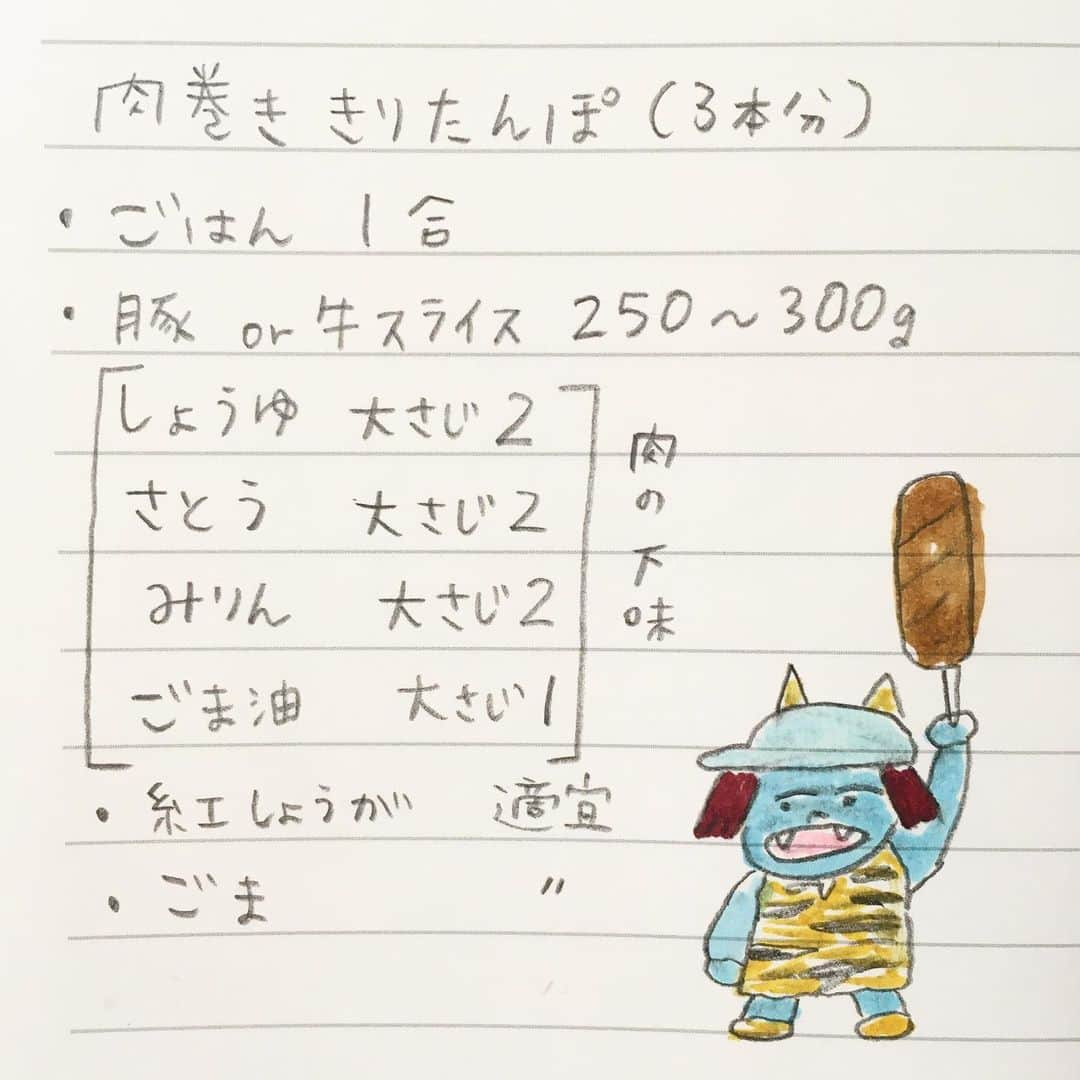 肉巻き きりたんぽ(3本分)
・ごはん 1合
・豚 or 牛スライス 250〜300g
しょうゆ 大さじ2
さとう 大さじ2
みりん 大さじ2
ごま油 大さじ1
肉の下味
・紅しょうが 適宜
・ごま 〃